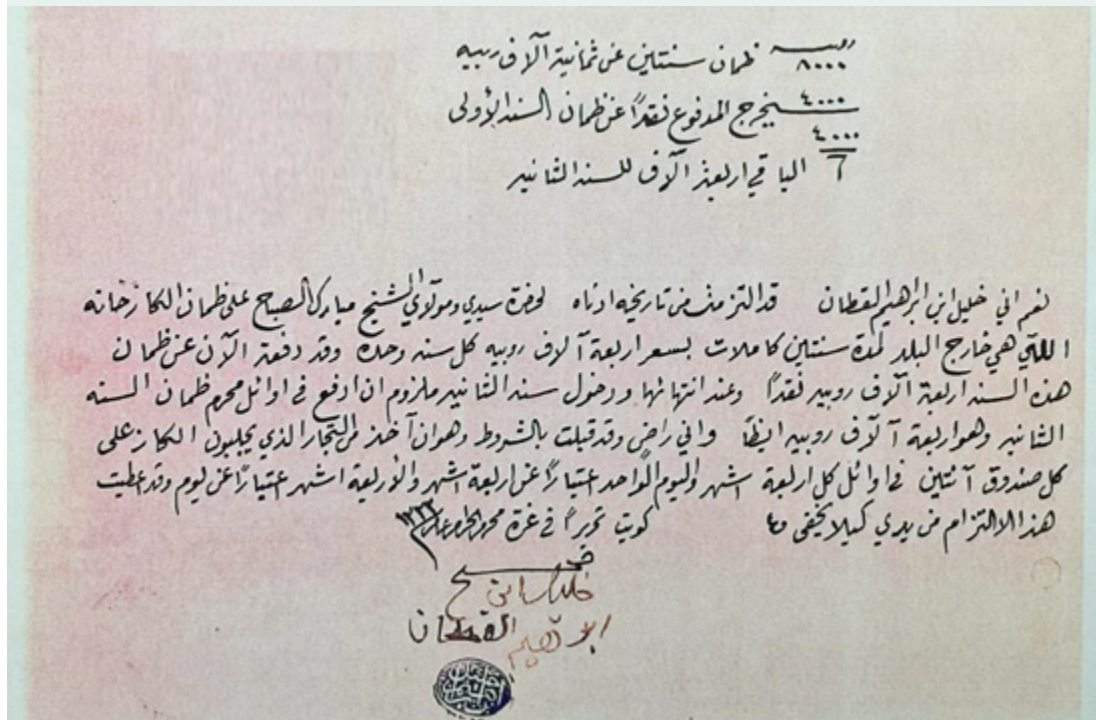 روبيه
٨٠٠٠ ظمان سنتين عن ثمانية آلاف ربيه
٤٠٠٠ يخرج المدفوع نقداً عن ظمان السنه الأولى
٤٠٠٠
الباقي اربعة آلاف للسنه الثانيه
نعم اني خليل ابن ابراهيم القطان قد التزمت من تاريخه ادناه لحضرة سيدي ومولاي الشيخ مبارك الصباح على ظمان الكازخانه
اللتي هي خارج البلد لمدة سنتين كاملات بسعر اربعة آلاف روبيه كل سنه وحده وقد دفعة الآن عن ظمان
هذه السنه اربعة آلاف روبيه نقداً وعند انتهائها ودخول سنه الثانيه ملزوم ان ادفع في اوائل محرم ظمان السنه
الثانيه وهو اربعة آلاف روبيه ايظاً واني راضي وقد قبلت بالشروط وهو ان آخذ من التجار الذي يجلبون الكاز على
كل صندوق آنتين في اوائل كل اربعة اشهر واليوم الواحد اعتباراً عن اربعة اشهر والاربعة اشهر اعتباراً عن يوم وقد اعطيت
هذا الالتزام من يدي كيلا يخفى كويت تحريراً في غرة محرم الحرام
صح
خليل ابن
ابراهيم القطان